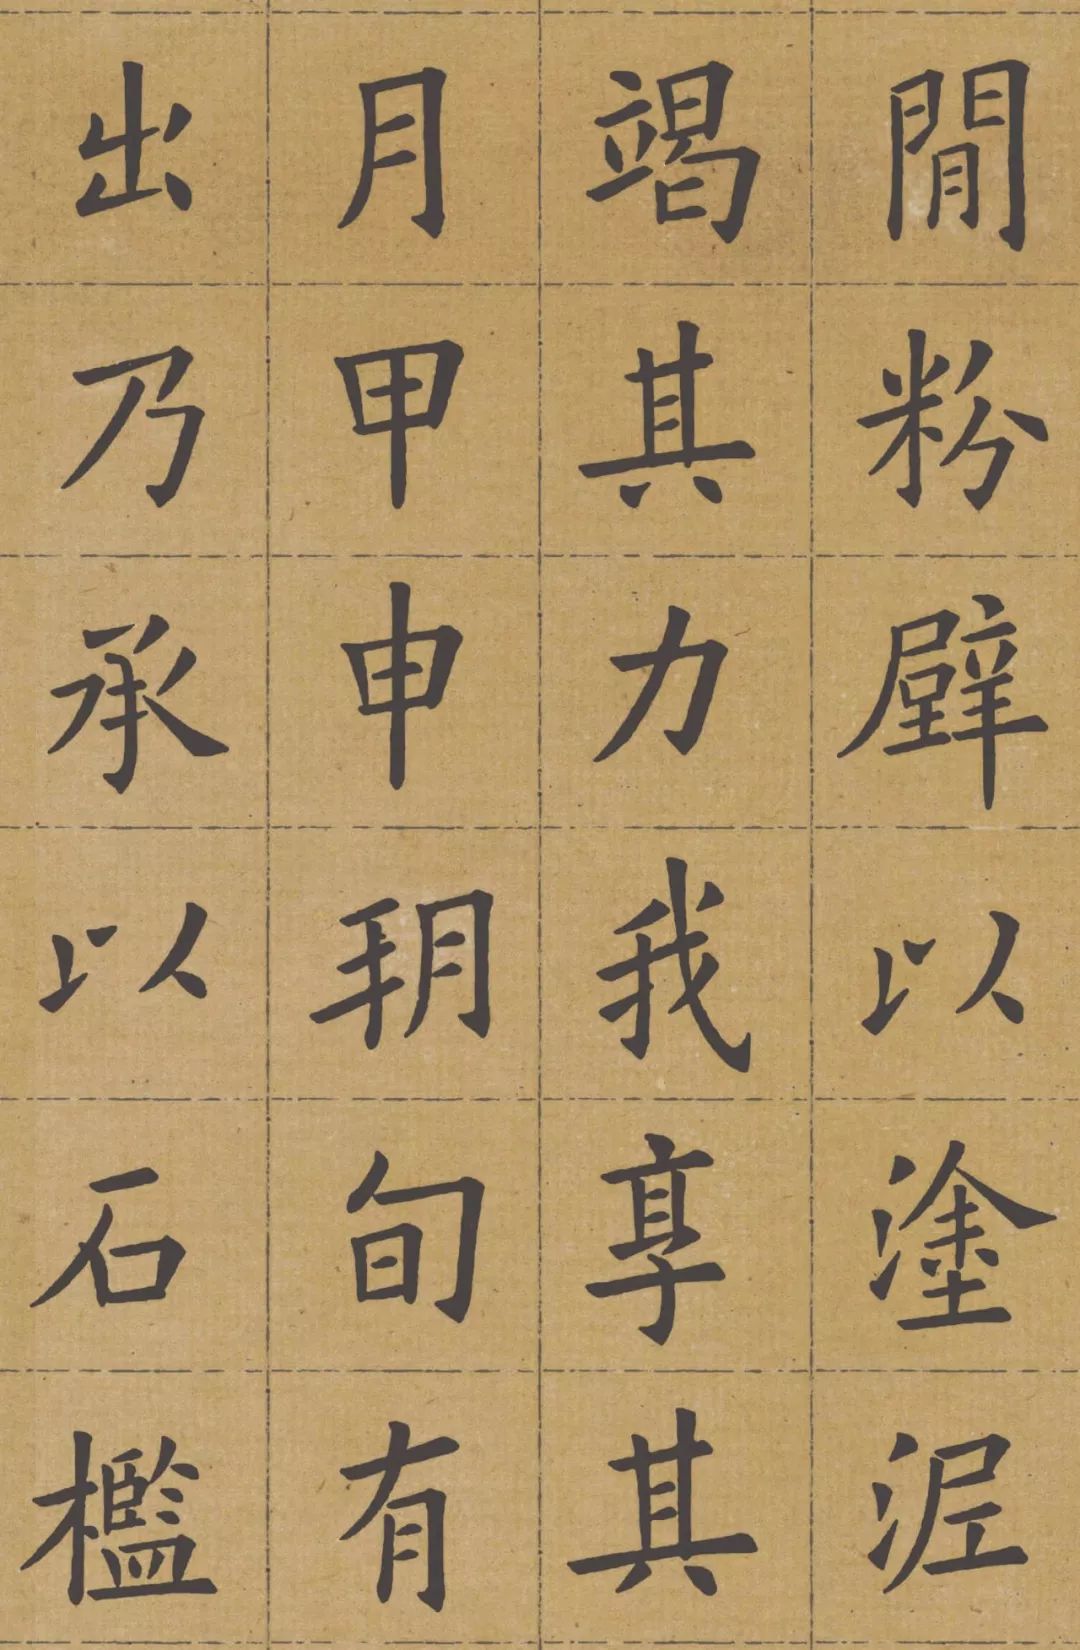 閒粉壁以塗泥
竭其力我享其
月甲申朔旬有
出乃承以石檻